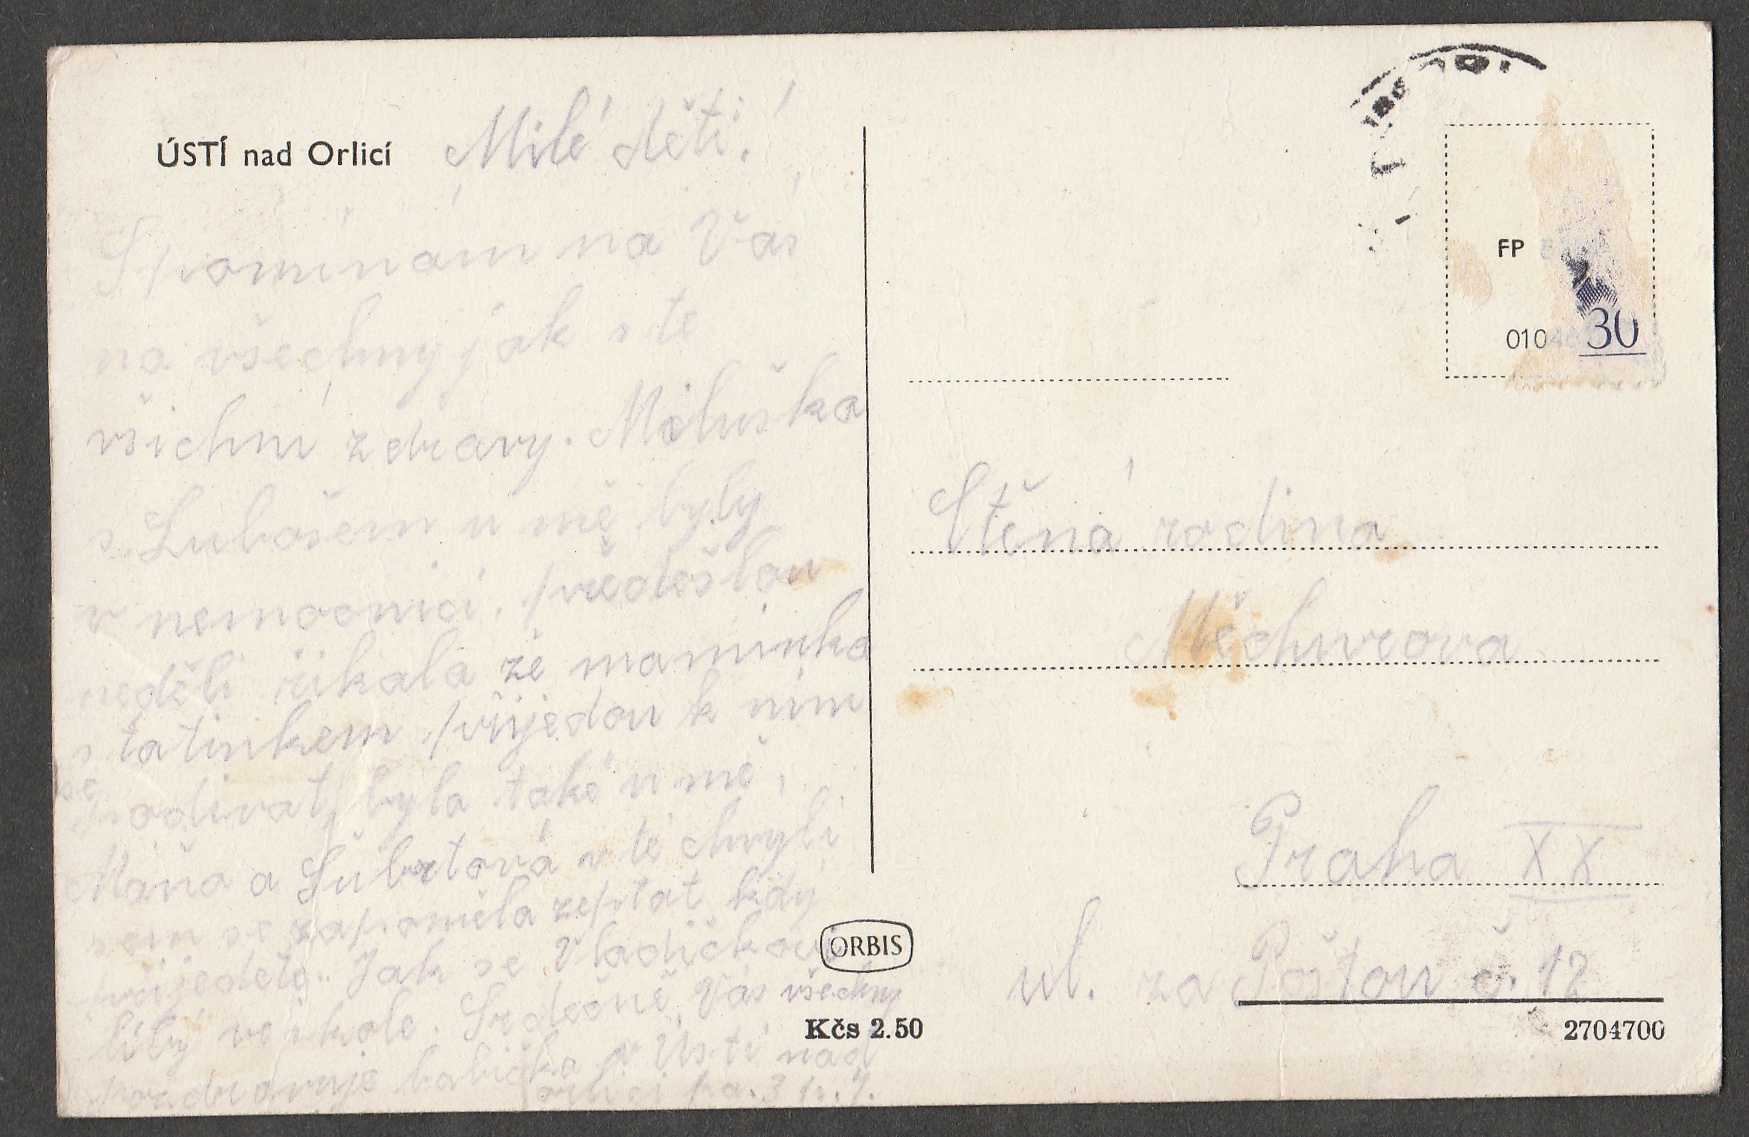 ÚSTÍ nad Orlicí
Milé děti!
Spomínám na Vás
na všechny jak ste
všichni zdravy. Miluška
s Lubošem u mě byly
v nemocnici, předešlou
neděli řikala že maminka
s tatinkem přijedou k nim
se podivat, byla také u mě,
Máňa a Šubrtová v té chvyli
sem se zapoměla zeptat kdy
přijedete. Jak se Vladičkovi
libý ve škole. Srdečně Vás všechny
pozdravuje babička v Ústí nad
orlicí
FP
010
30
Ctěná rodina
Měchurova
Praha XX
ul. za Poštou č. 12
ORBIS
Kčs 2.50
2704700